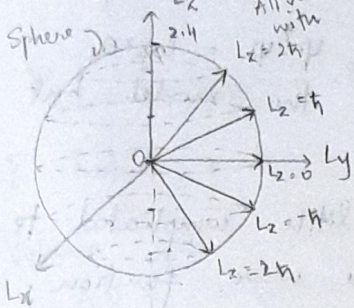 All
with
Sphere
2.4
Lz = 2ħ
Lz = ħ
O
Ly
Lz = 0
Lz = -ħ
Lz = 2ħ
Lx